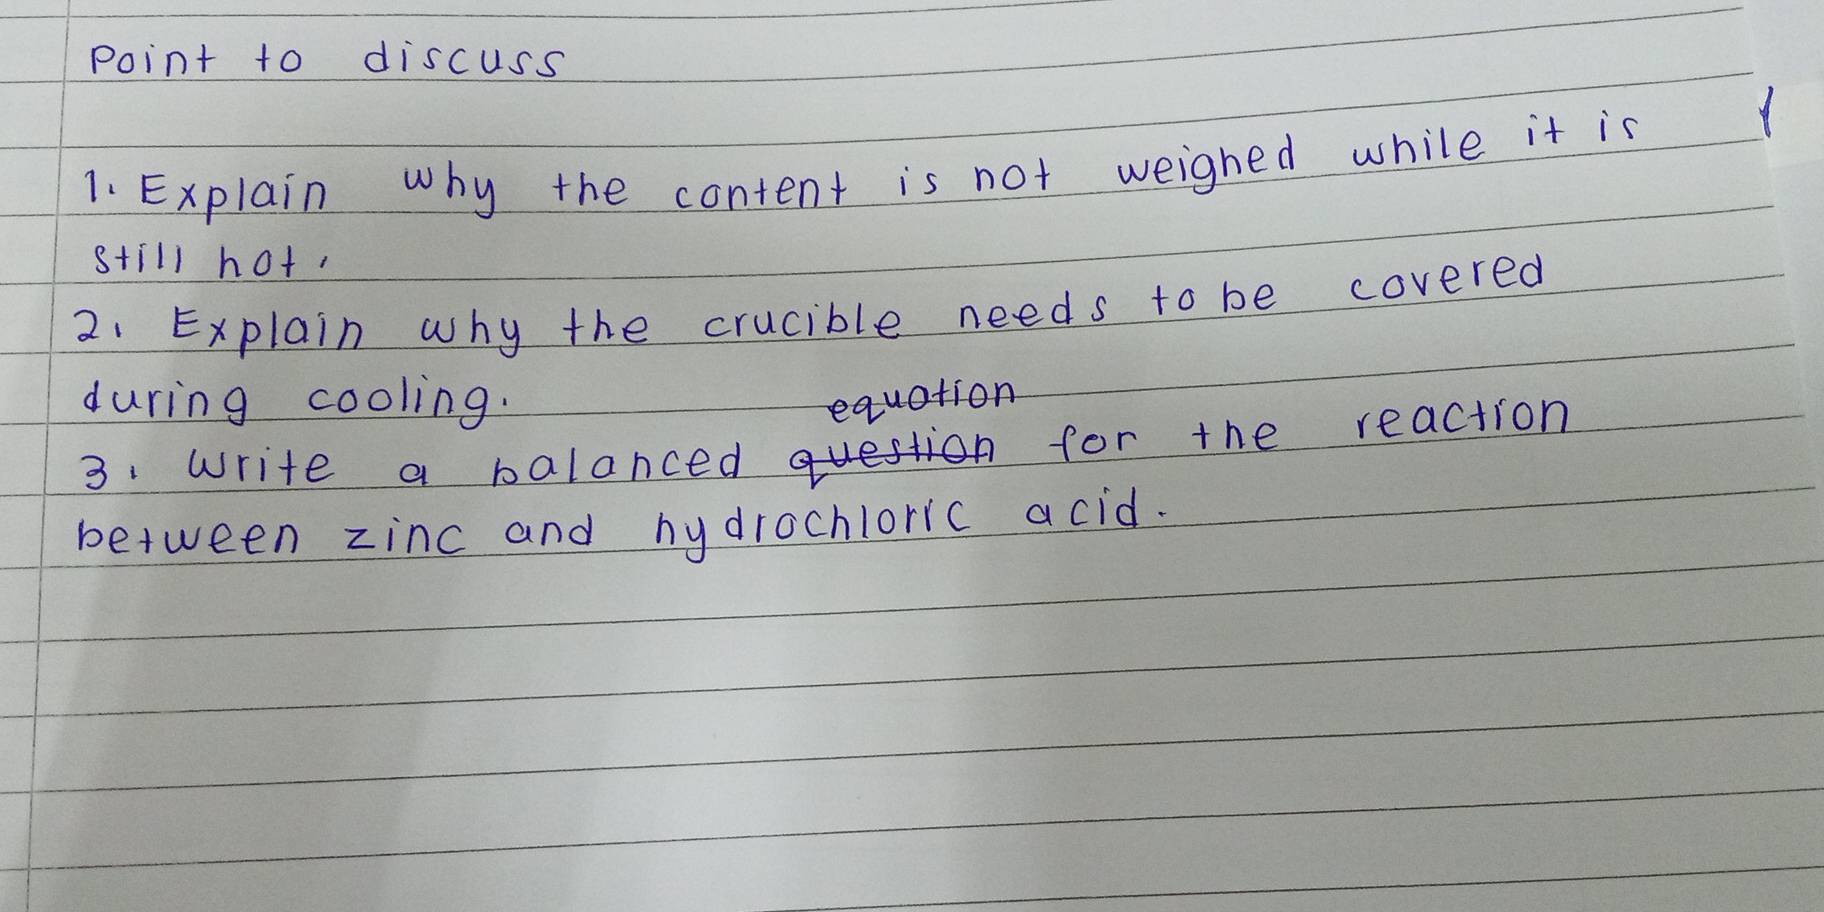 Point to discuss
1. Explain why the content is not weighed while it is
still hot.
2. Explain why the crucible needs to be covered
during cooling.
equation
3. Write a balanced question for the reaction
between zinc and hydrochloric acid.